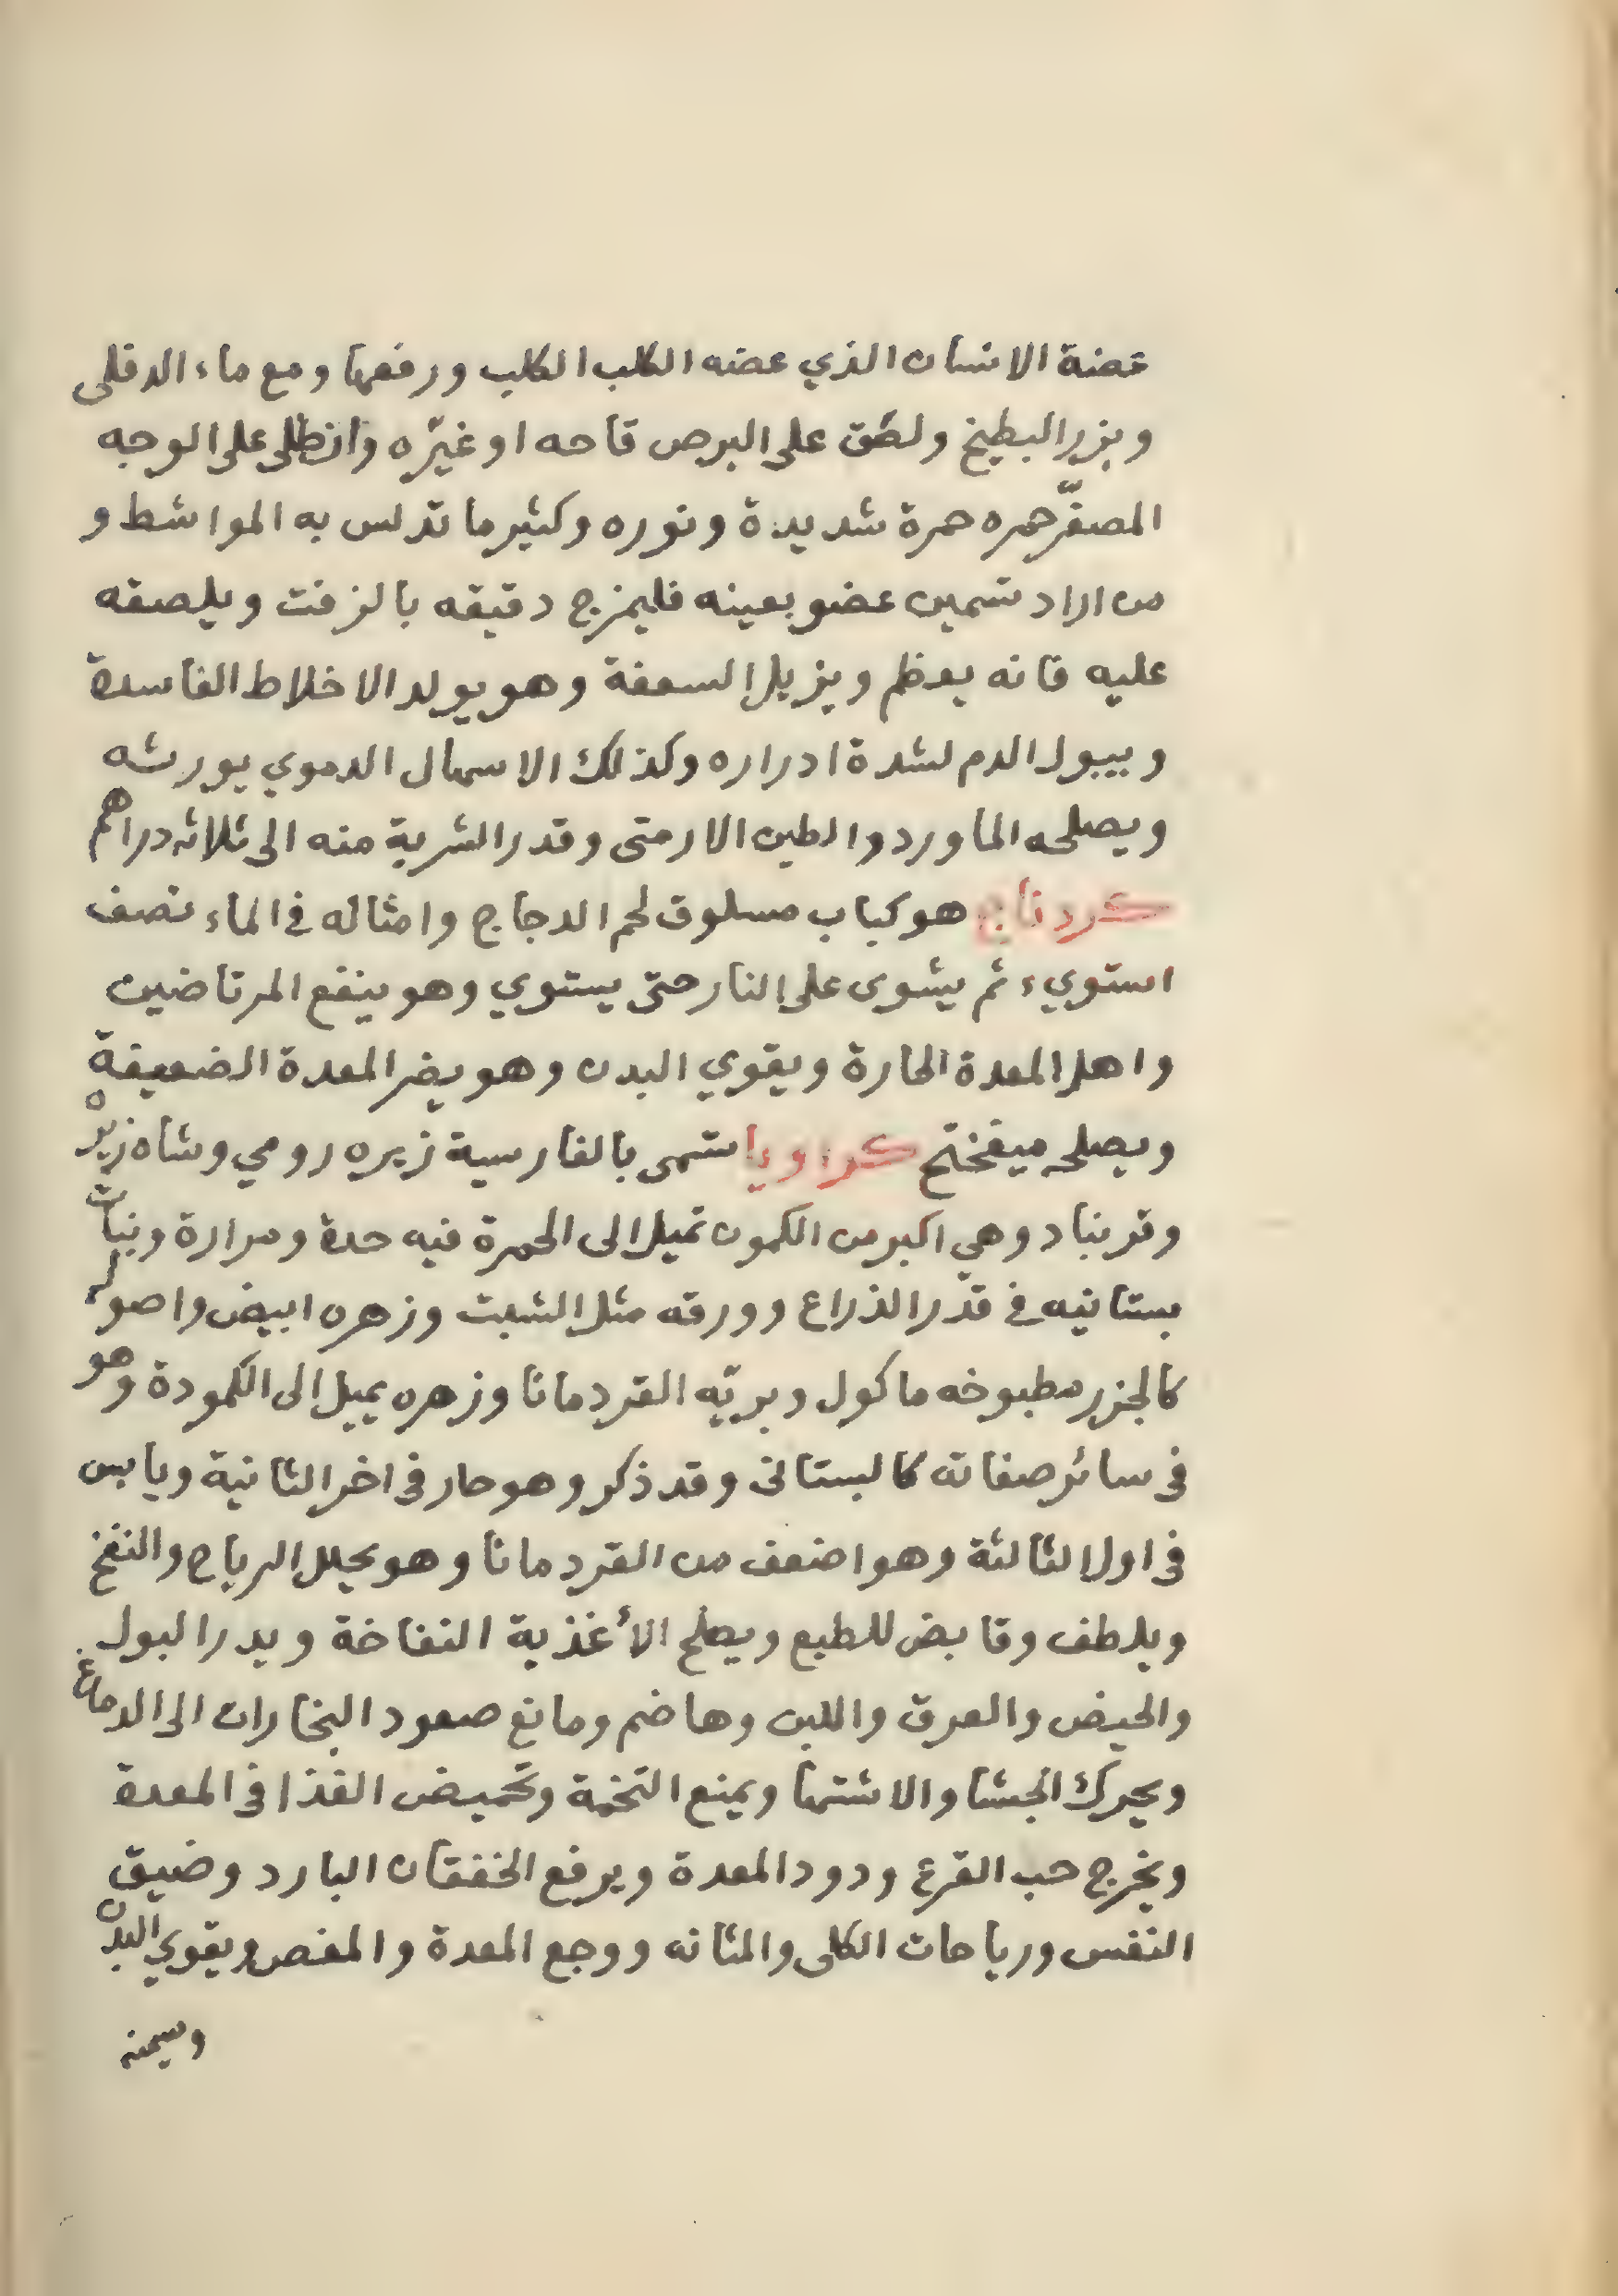 عضة الانسان الذي عضه الكلب الكلب ورفعها ومع ماء الدفلى
وبزر البطيخ ولصق على البرص قاحه او غيّره وان طلى على الوجه
المصفّر حمره حمرة شديدة ونوره وكثير ما تدلس به المواشط و
من اراد تسمين عضو بعينه فليمزج دقيقه بالزفت ويلصقه
عليه فانه يعظم ويزيل السعفة وهو يولد الاخلاط الفاسدة
ويبول الدم لشدة ادراره وكذلك الاسهال الدموي يورثه
ويصلحه الماورد والطين الارمنى وقدر الشربة منه الى ثلاثه دراهم
كردناج هو كباب مسلوق لحم الدجاج وامثاله في الماء نصف
استوي ثم يشوى على النار حتى يستوي وهو ينفع المرتاضين
واهل المعدة الحارة ويقوي البدن وهو يضر المعدة الضعيفة
ويصلحه ميفختج كراويا تسمى بالفارسية زيره رومي وشاه زيره
وقرنباد وهي اكبر من الكمون تميل الى الحمرة فيه حدة ومرارة ونبات
بستانيه في قدر الذراع وورقه مثل الشبت وزهره ابيض واصوله
كالجزر مطبوخه ماكول وبريّه القردمانا وزهره يميل الى الكمودة وهو
فى سائر صفاته كالبستانى وقد ذكر وهو حار فى اخر الثانية ويابس
فى اول الثالثة وهو اضعف من القردمانا وهو يحلل الرياح والنفخ
ويلطف وقابض للطبع ويصلح الأغذية النفاخة ويدر البول
والحيض والعرق واللبن وهاضم ومانع صعود البخارات الى الدماغ
ويحرك الجشا والاشتها ويمنع التخمة وتحميض الغذا فى المعدة
ويخرج حب القرع ودود المعدة ويرفع الخفقان البارد وضيق
النفس ورياحات الكلى والمثانه ووجع المعدة والمغص ويقوي البدن
ويسمنه